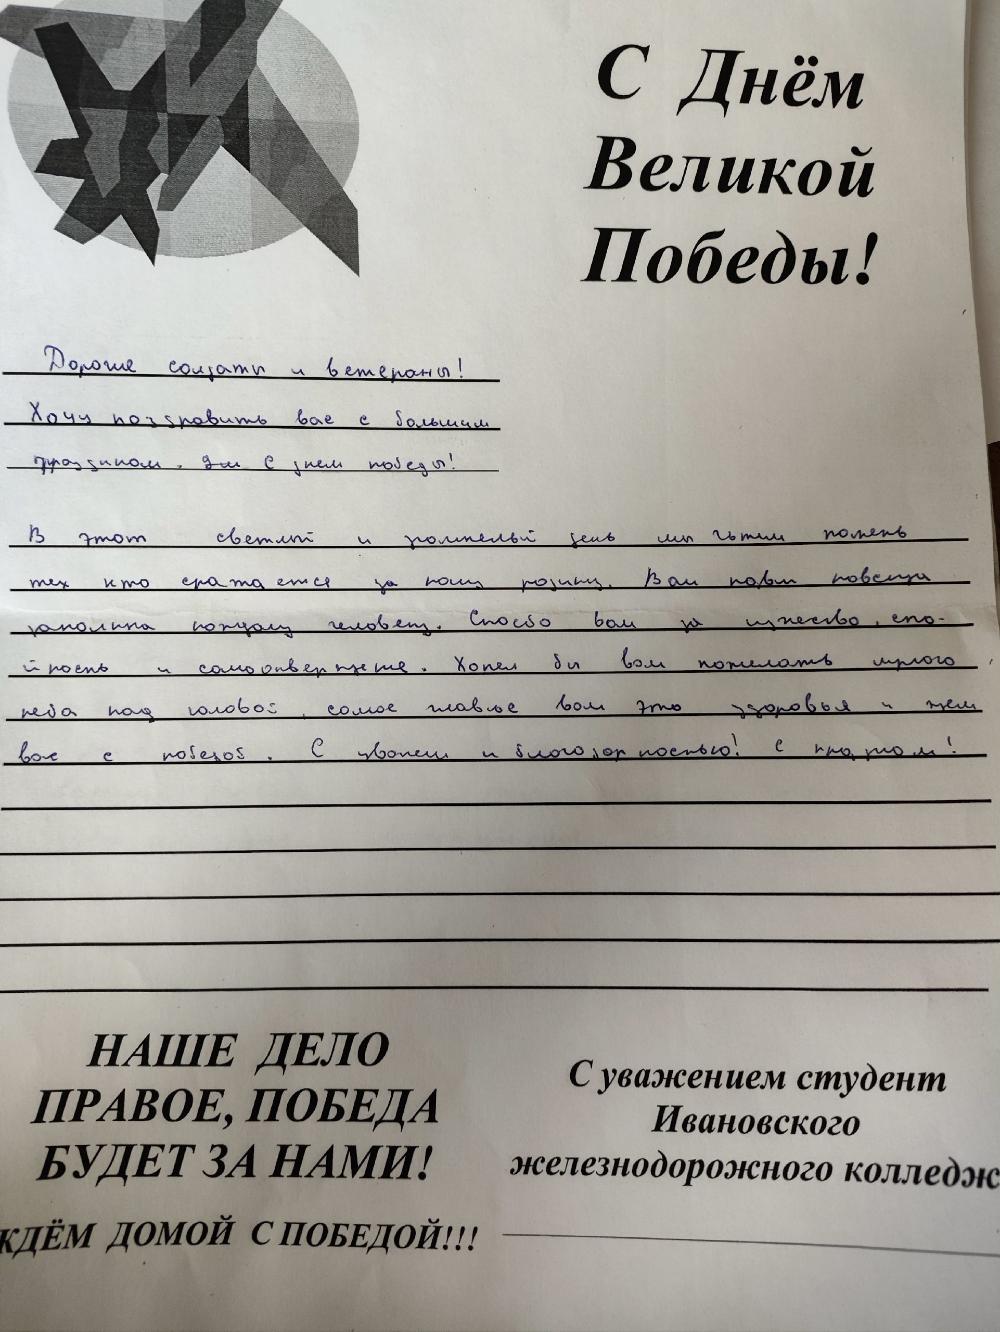 С Днём
Великой
Победы!
Дорогие солдаты и ветераны!
Хочу поздравить вас с большим
праздником. С днем победы!
В этот светлый и день мы чтим память
тех кто сражается за нашу родину. Ваш навсегда
человеку. Спасибо вам за мужество,
и самоотвержение. Хотел бы вам пожелать мирного
неба над головой, самое главное вам это здоровья и ждем
вас с победой. С уважением и благодарностью! С праздником!
НАШЕ ДЕЛО
ПРАВОЕ, ПОБЕДА
БУДЕТ ЗА НАМИ!
ЖДЁМ ДОМОЙ С ПОБЕДОЙ!!!
С уважением студент
Ивановского
железнодорожного колледж